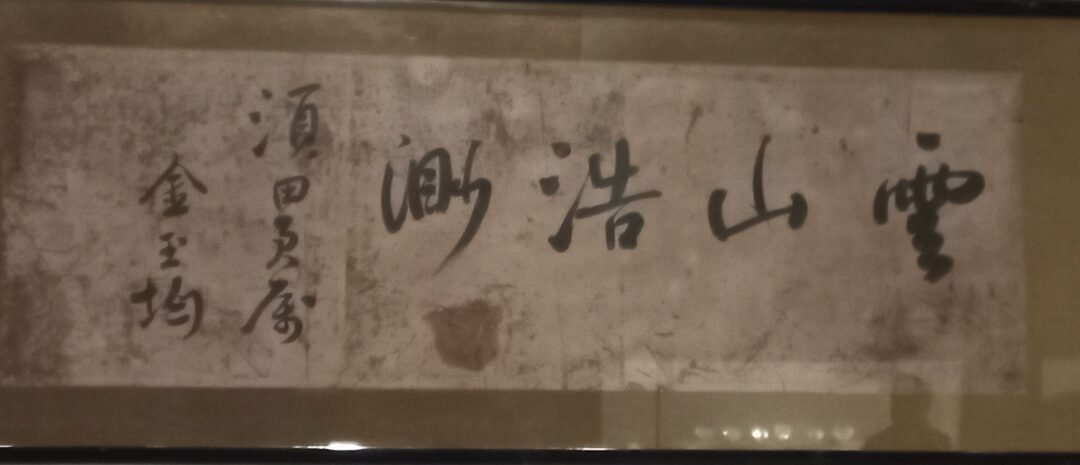 雲山浩渺
須田君属
金玉均